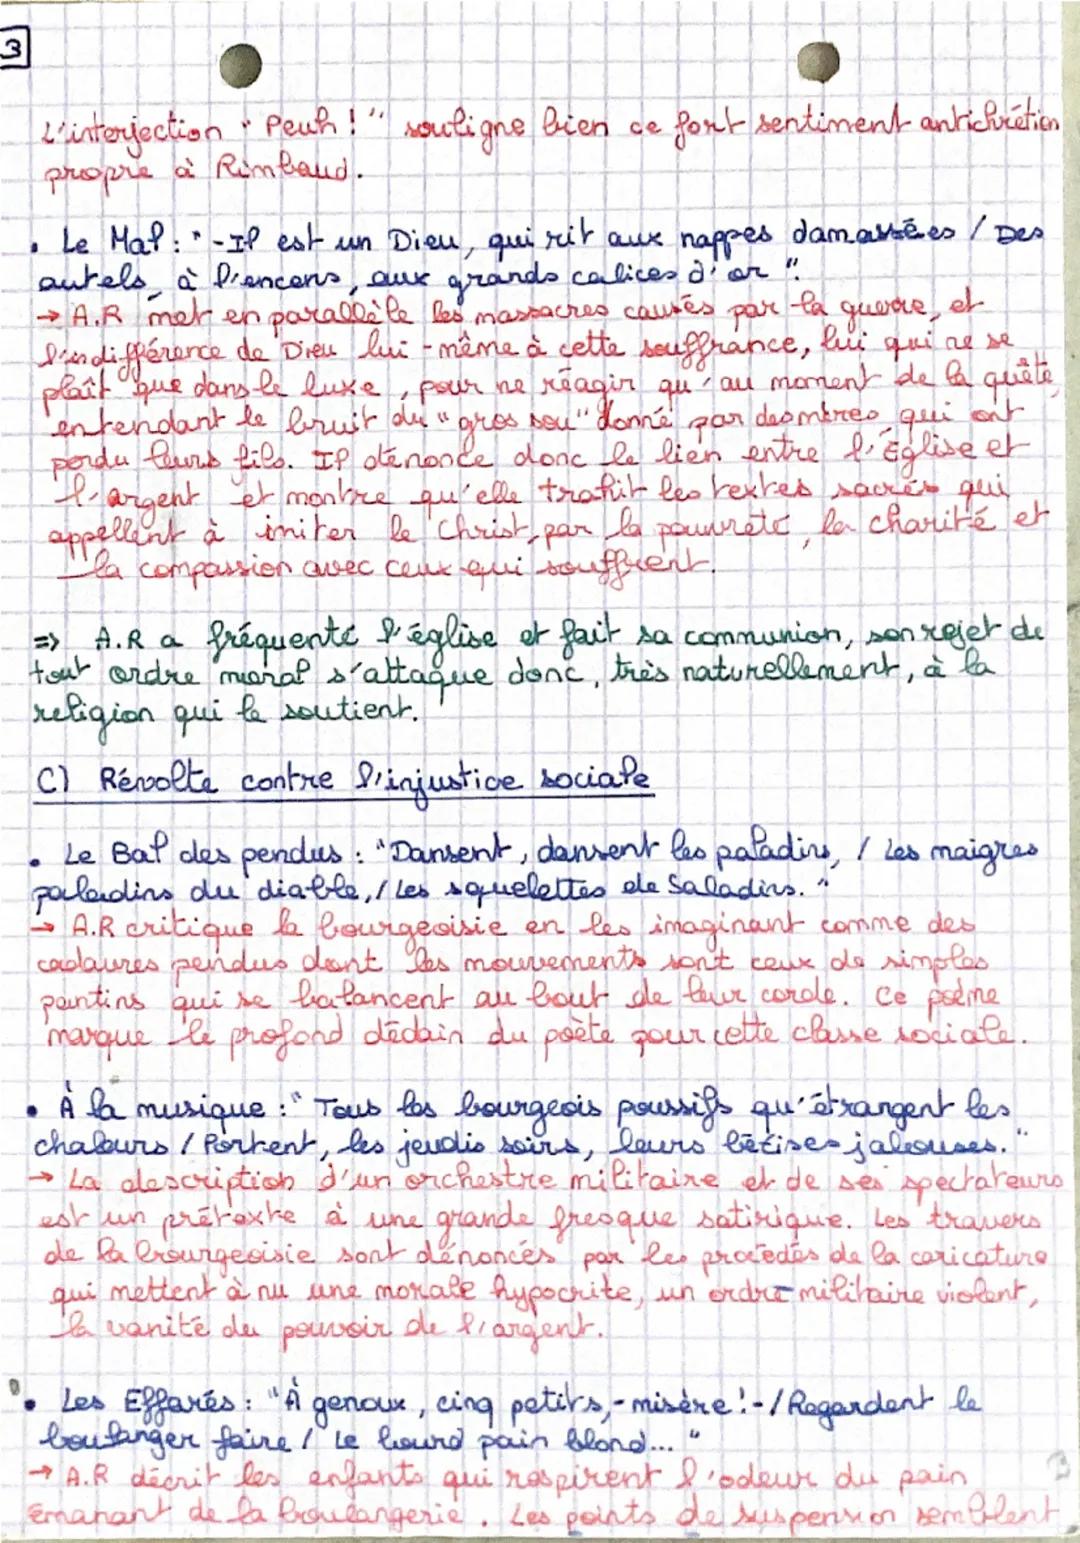 3
L'interjection "Peuh!" souligne bien ce fort sentiment antichrétien
propre à Rimbaud.
• Le Mal : "-Il est un Dieu, qui rit aux nappes damassées / Des
autels, à l'encens, aux grands calices d'or".
→ A.R met en parallèle les massacres causés par la guerre, et
l'indifférence de Dieu lui-même à cette souffrance, lui qui ne se
plaît que dans le luxe, pour ne réagir qu'au moment de la quête,
entendant le bruit du "gros sou" donné par des mères qui ont
perdu leurs fils. Il dénonce donc le lien entre l'Église et
l'argent et montre qu'elle trahit les textes sacrés qui
appellent à imiter le Christ, par la pauvreté, la charité et
la compassion avec ceux qui souffrent.
=> A.R a fréquenté l'église et fait sa communion, son rejet de
tout ordre moral s'attaque donc, très naturellement, à la
religion qui le soutient.
C) Révolte contre l'injustice sociale
• Le Bal des pendus : "Dansent, dansent les paladins, / Les maigres
paladins du diable, / Les squelettes de Saladins."
→ A.R critique la bourgeoisie en les imaginant comme des
cadavres pendus dont les mouvements sont ceux de simples
pantins qui se balancent au bout de leur corde. Ce poème
marque le profond dédain du poète pour cette classe sociale.
• À la musique : "Tous les bourgeois poussifs qu'étrangent les
chaleurs / Portent, les jeudis soirs, leurs bêtises jalouses."
→ La description d'un orchestre militaire et de ses spectateurs
est un prétexte à une grande fresque satirique. Les travers
de la bourgeoisie sont dénoncés par les procédés de la caricature
qui mettent à nu une morale hypocrite, un ordre militaire violent,
la vanité du pouvoir de l'argent.
• Les Effarés : "À genoux, cinq petits, -misère!- / Regardent le
boulanger faire / Le lourd pain blond..."
→ A.R décrit les enfants qui respirent l'odeur du pain
émanant de la boulangerie. Les points de suspension semblent